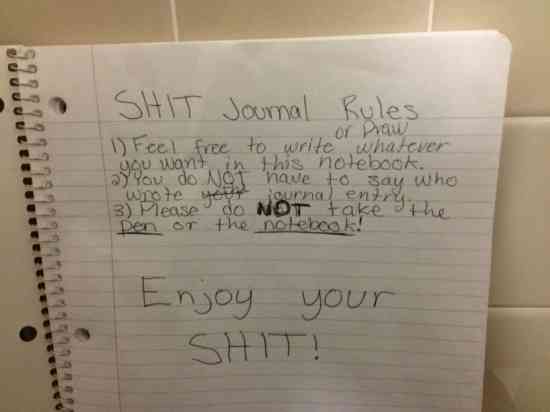 SHIT Journal Rules
or Draw
1) Feel free to write whatever
you want in this notebook.
2) You do NOT have to say who
wrote your journal entry.
3) Please do NOT take the
pen or the notebook!
Enjoy your
SHIT!